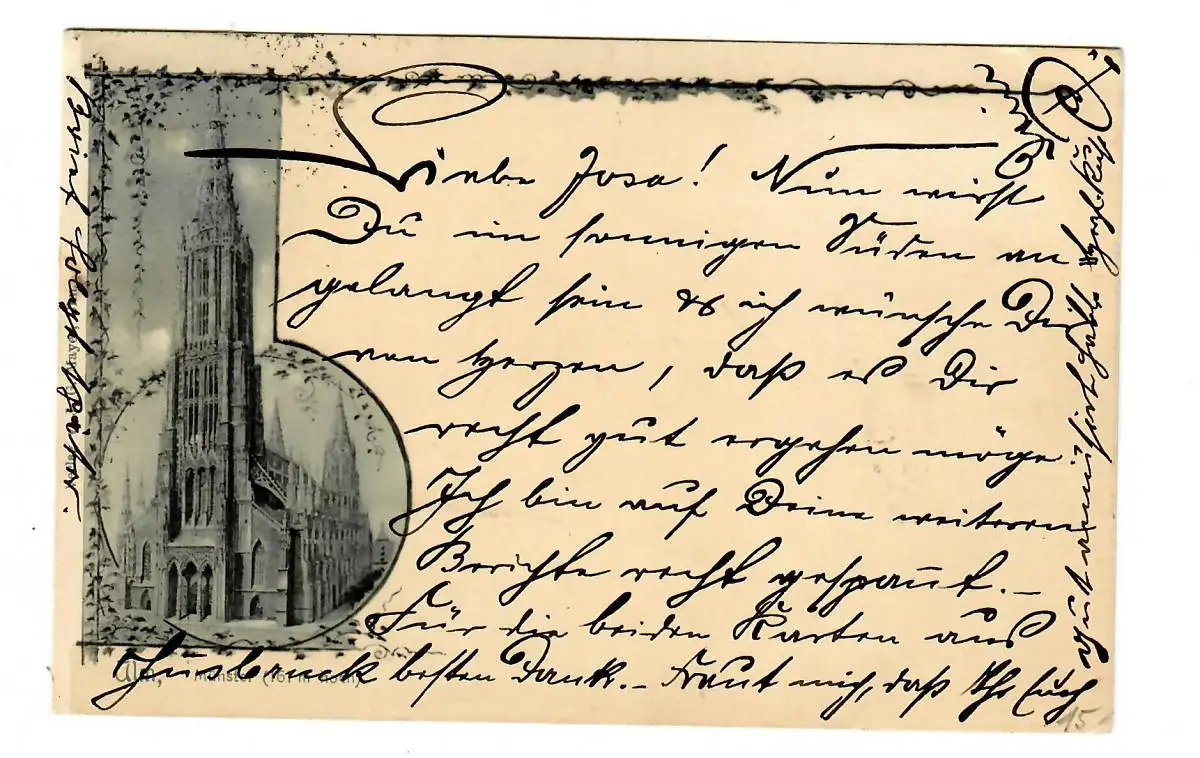 Liebe Josa! Nun wirst
Du im sonnigen Süden an
gelangt sein & ich wünsche Dir
von Herzen, daß es Dir
recht gut ergehen möge
Ich bin auf Deine weiteren
Berichte recht gespannt. –
Für die beiden Karten aus
Insbruck besten Dank. – Freut mich, daß Ihr Euch
gut amüsirt habt. Herzl. Kuß
Brief folgt später.
Ulm, Münster (161 m hoch)
15